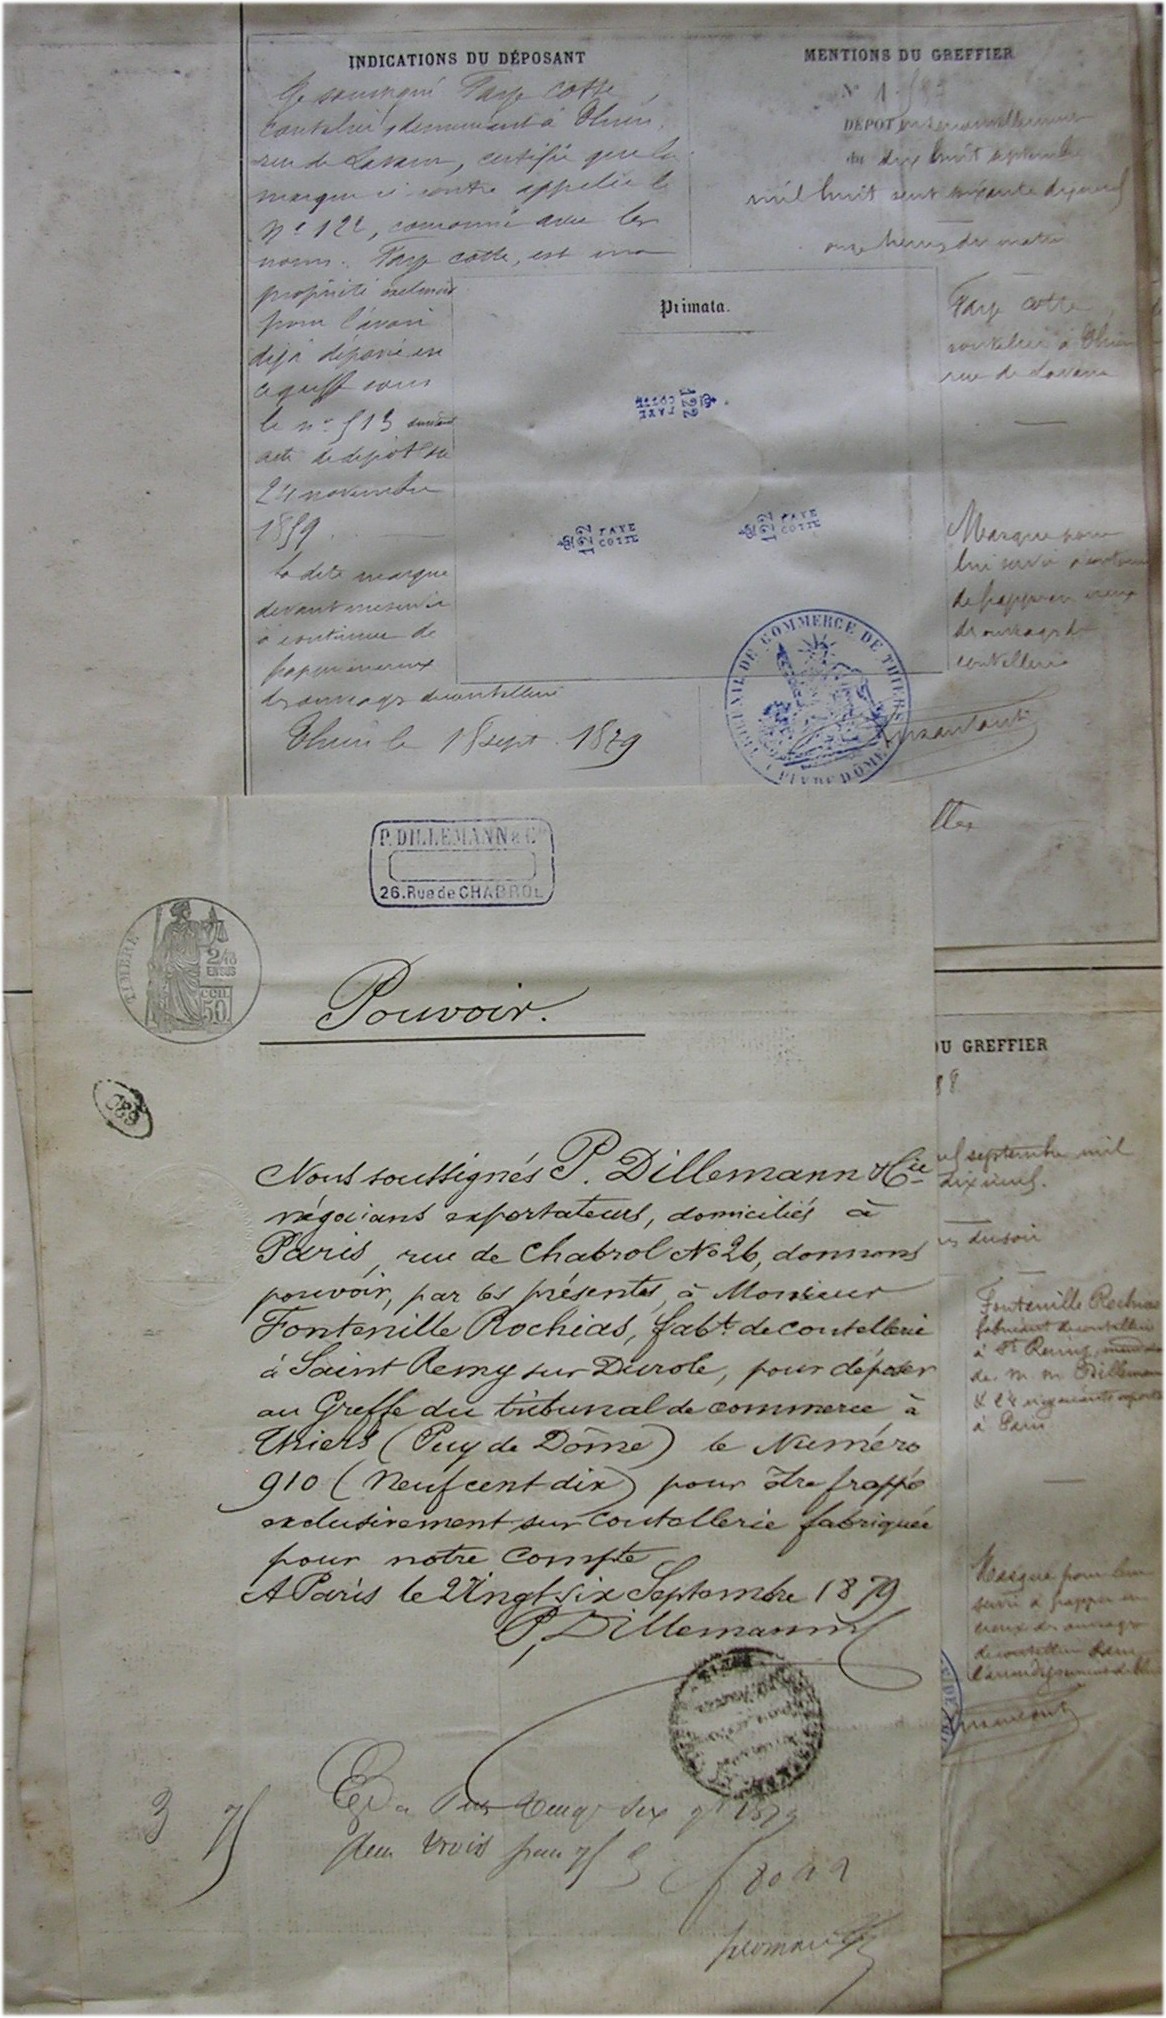 INDICATIONS DU DÉPOSANT
Je soussigné Faye Cotte,
coutelier, demeurant à Thiers,
rue de Lavaur, certifie que la
marque ci contre appelée le
N° 122, couronné avec les
noms. Faye Cotte, est ma
propriété
pour l'avoir
déjà déposée en
ce greffe sous
le n° 513 suivant
acte de dépôt du
24 novembre
1859.
la dite marque
devant me servir
à continuer de
frapper en creux
des ouvrages de coutellerie
Thiers le 18 sept. 1879
MENTIONS DU GREFFIER
N° 1
DÉPOT en renouvellement
du dix huit septembre
mil huit cent soixante dix neuf
onze heures du matin
Primata.
122
FAYE
COTTE
122
FAYE
COTTE
122
FAYE
COTTE
Faye Cotte
coutelier à Thiers
rue de Lavaur
Marque pour
lui servir à continuer
de frapper en creux
des ouvrages de
coutellerie
TRIBUNAL DE COMMERCE DE THIERS
PUY DE DÔME
P. DILLEMANN & Cie
26. Rue de CHABROL
TIMBRE
2/10
EN SUS
50
Pouvoir.
Nous soussignés P. Dillemann & Cie
négocians exportateurs, domiciliés à
Paris, rue de Chabrol No 26, donnons
pouvoir, par les présentes, à Monsieur
Fontenille Rochias, fabt. de coutellerie
à Saint Remy sur Durole, pour déposer
au Greffe du tribunal de commerce à
Thiers (Puy de Dôme) le Numéro
910 (Neuf cent dix) pour être frappé
exclusivement sur Coutellerie fabriquée
pour notre Compte
A Paris le Vingt six Septembre 1879
P. Dillemann
3 75
DU GREFFIER
septembre mil
dix neuf.
du soir
Fontenille Rochias
fabricant de coutellerie
à St Remy,
de M. M. Dillemann
& Cie négociants
à Paris
Marque pour leur
servir à frapper en
creux des ouvrages
de coutellerie dans
l'arrondissement de